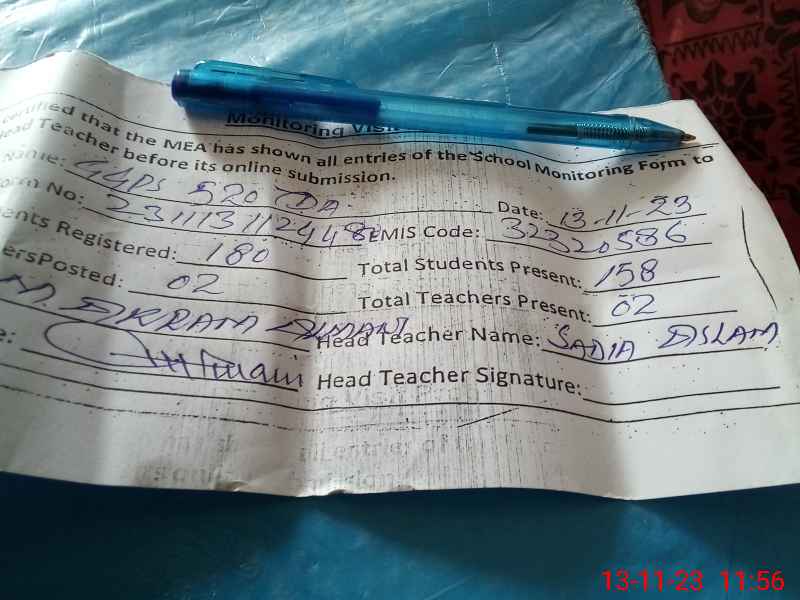 Monitoring Vis
certified that the MEA has shown all entries of the School Monitoring Form to
Head Teacher before its online submission.
Name: GGPS 520 DA. Date: 13-11-23
orm No: 23111311 2448 EMIS Code: 32320586
ents Registered: 180 Total Students Present: 158
ersPosted: 02 Total Teachers Present: 02
M. IKRAM Head Teacher Name: SADIA ISLAM
e: Head Teacher Signature:
13-11-23 11:56